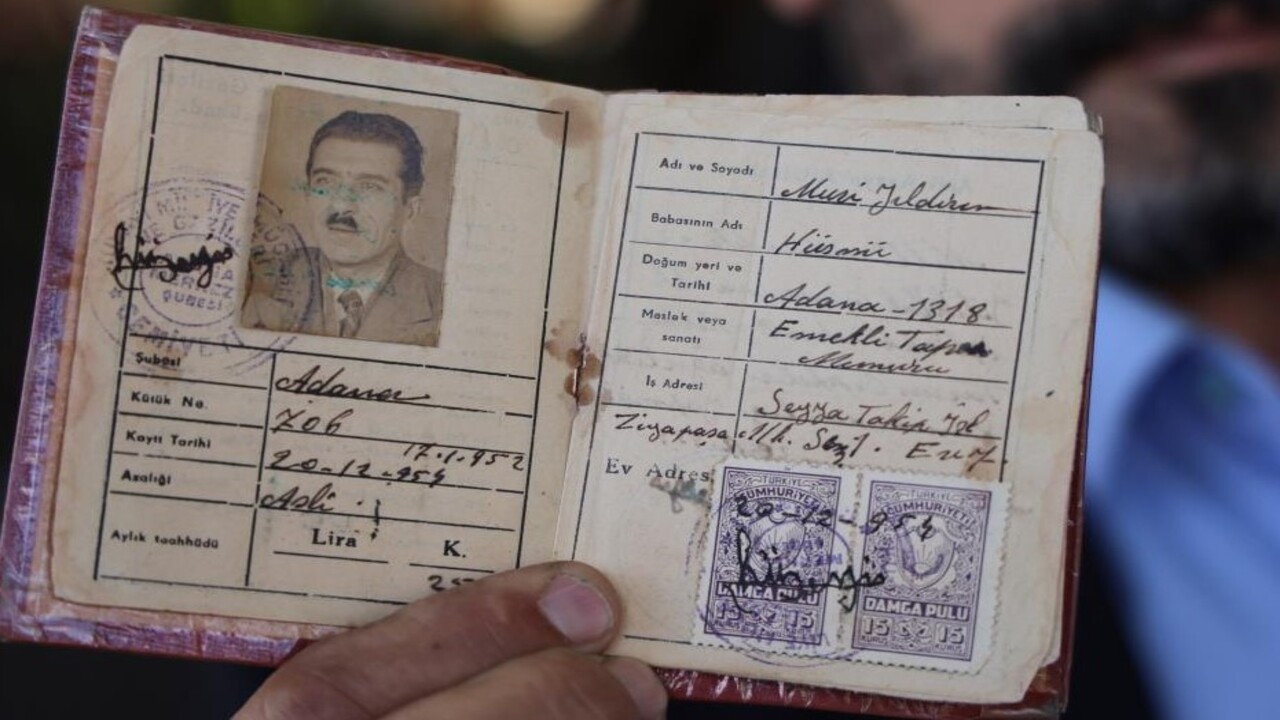 Şubesi Adana
Kütük No. 706
17.1.952
Kayıt Tarihi 20-12-954
Asalığı Asli
Aylık taahhüdü Lira K.
Adı ve Soyadı Musi Yıldırım
Babasının Adı Hüsnü
Doğum yeri ve
Tarihi Adana-1318
Meslek veya Emekli Tapu
sanatı Memuru
İş Adresi
Ziyapaşa Mh.
Ev Adresi
20-12-954
TÜRKİYE TÜRKİYE
CUMHURİYETİ CUMHURİYETİ
DAMGA PULU DAMGA PULU
15 15 15 15
KURUŞ
ŞUBESİ
CEMİYET